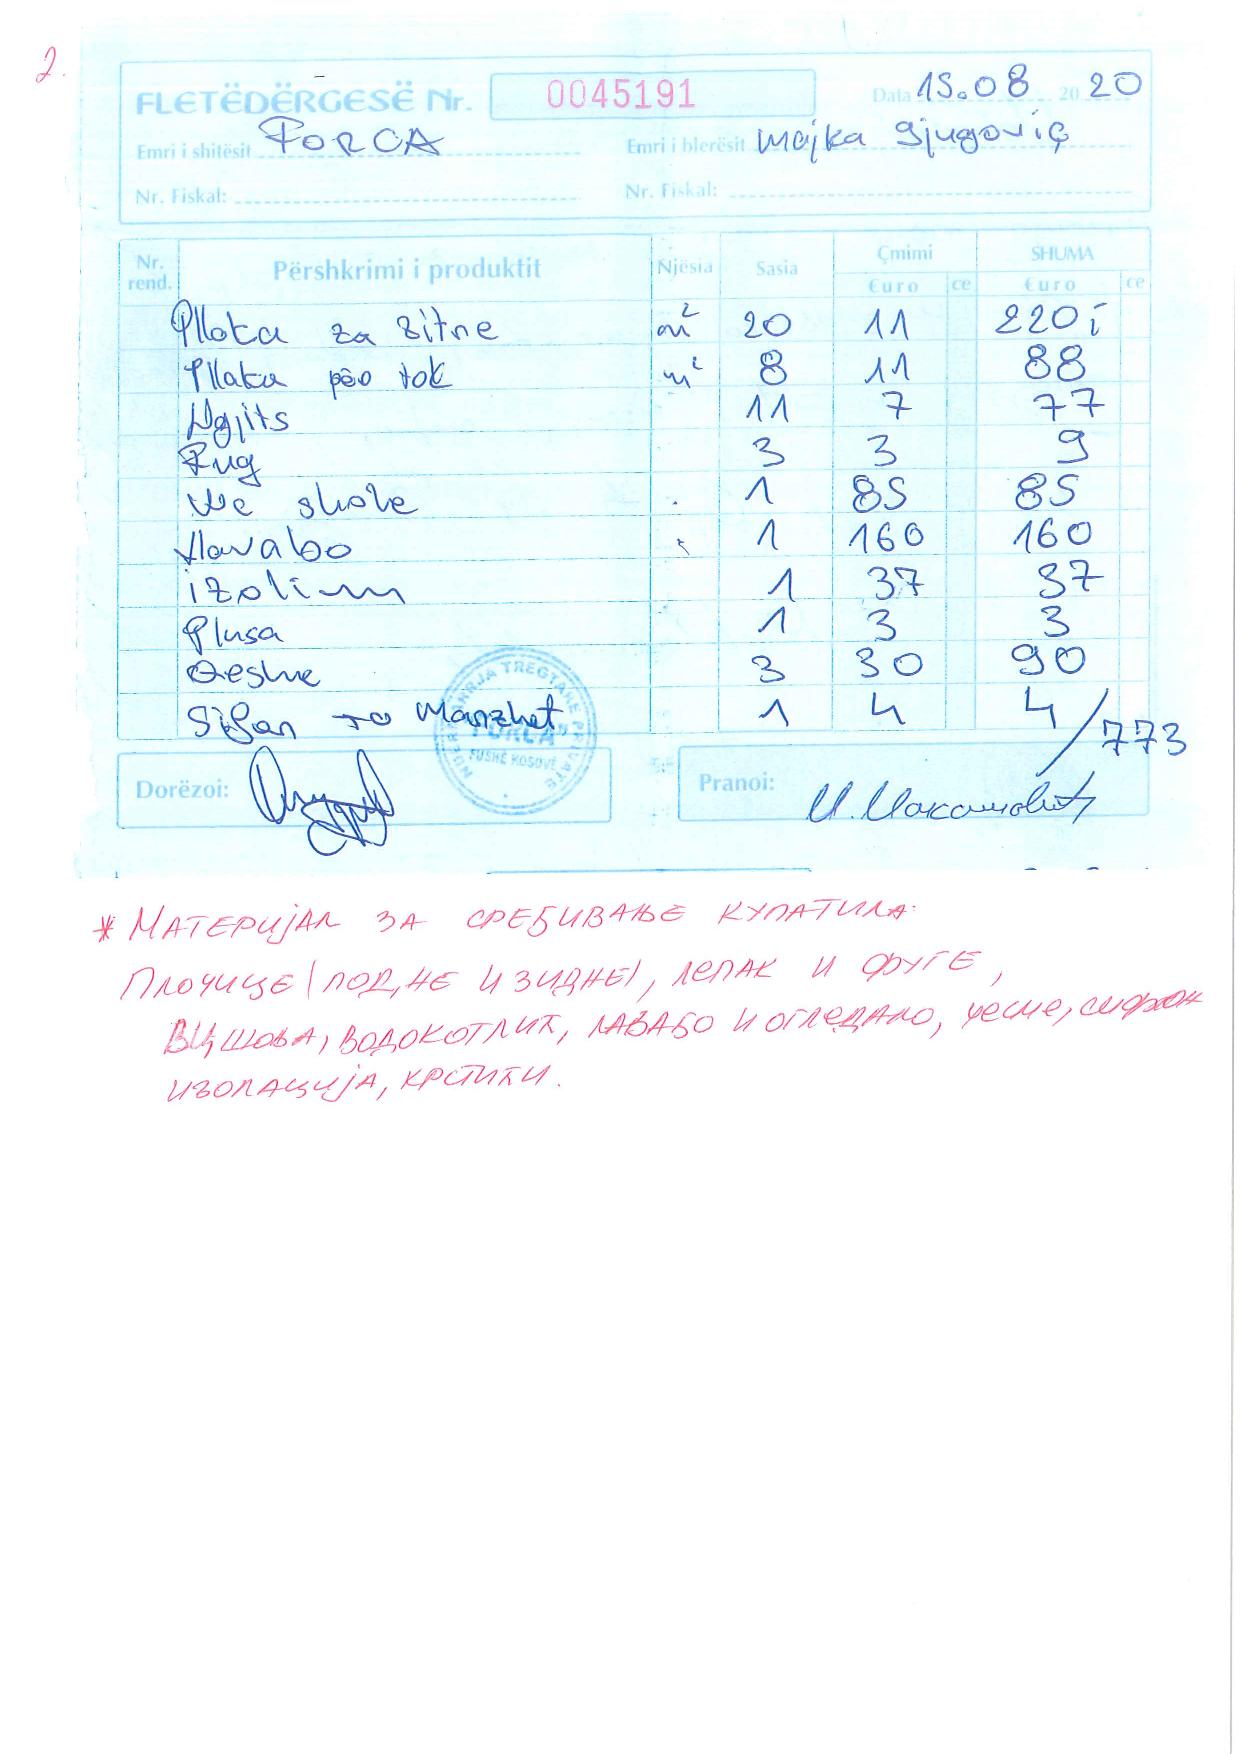 2.
FLETËDËRGESË Nr. 0045191 Data 15.08 20 20
Emri i shitësit FORCA Emri i blerësit Majka Gjugoviç
Nr. Fiskal: Nr. Fiskal:
Nr. rend. Përshkrimi i produktit Njësia Sasia Çmimi SHUMA
Euro ce Euro ce
Plloka za zitne m² 20 11 220
Pllaka për tok m² 8 11 88
Ngjits 11 7 77
Fug 3 3 9
We shole 1 85 85
Llavabo 1 160 160
izolim 1 37 37
Plusa 1 3 3
Qesme 3 30 90
Sifan Manzhet 1 4 4 / 773
NDERMARRJA TREGTARE PRIVATE
"FORCA"
FUSHË KOSOVË
Dorëzoi: Pranoi:
* МАТЕРИЈАЛ ЗА СРЕЂИВАЊЕ КУПАТИЛА.
ПЛОЧИЦЕ (ПОДНЕ И ЗИДНЕ), ЛЕПАК И ФУГЕ,
ВЦ ШОЉА, ВОДОКОТЛИЋ, ЛАВАБО И ОГЛЕДАЛО, чесме, сифон
ИЗОЛАЦИЈА, КРСТИЋИ.